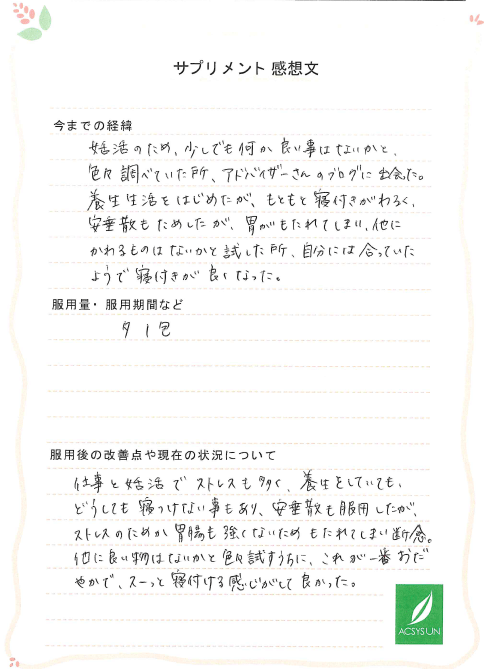 サプリメント 感想文
今までの経緯
妊活のため、少しでも何か良い事はないかと、
色々調べていた所、アドバイザーさんのブログに出会った。
養生生活をはじめたが、もともと寝付きがわるく、
安垂散もためしたが、胃がもたれてしまい、他に
かわるものはないかと試した所、自分には合っていた
ようで寝付きが良くなった。
服用量・服用期間など
夕 1包
服用後の改善点や現在の状況について
仕事と妊活でストレスも多く、養生をしていても、
どうしても寝つけない事もあり、安垂散も服用したが、
ストレスのためか胃腸も強くないためもたれてしまい断念。
他に良い物はないかと色々試すうちに、これが一番おだ
やかで、スーっと寝付ける感じがして良かった。
ACSYSUN